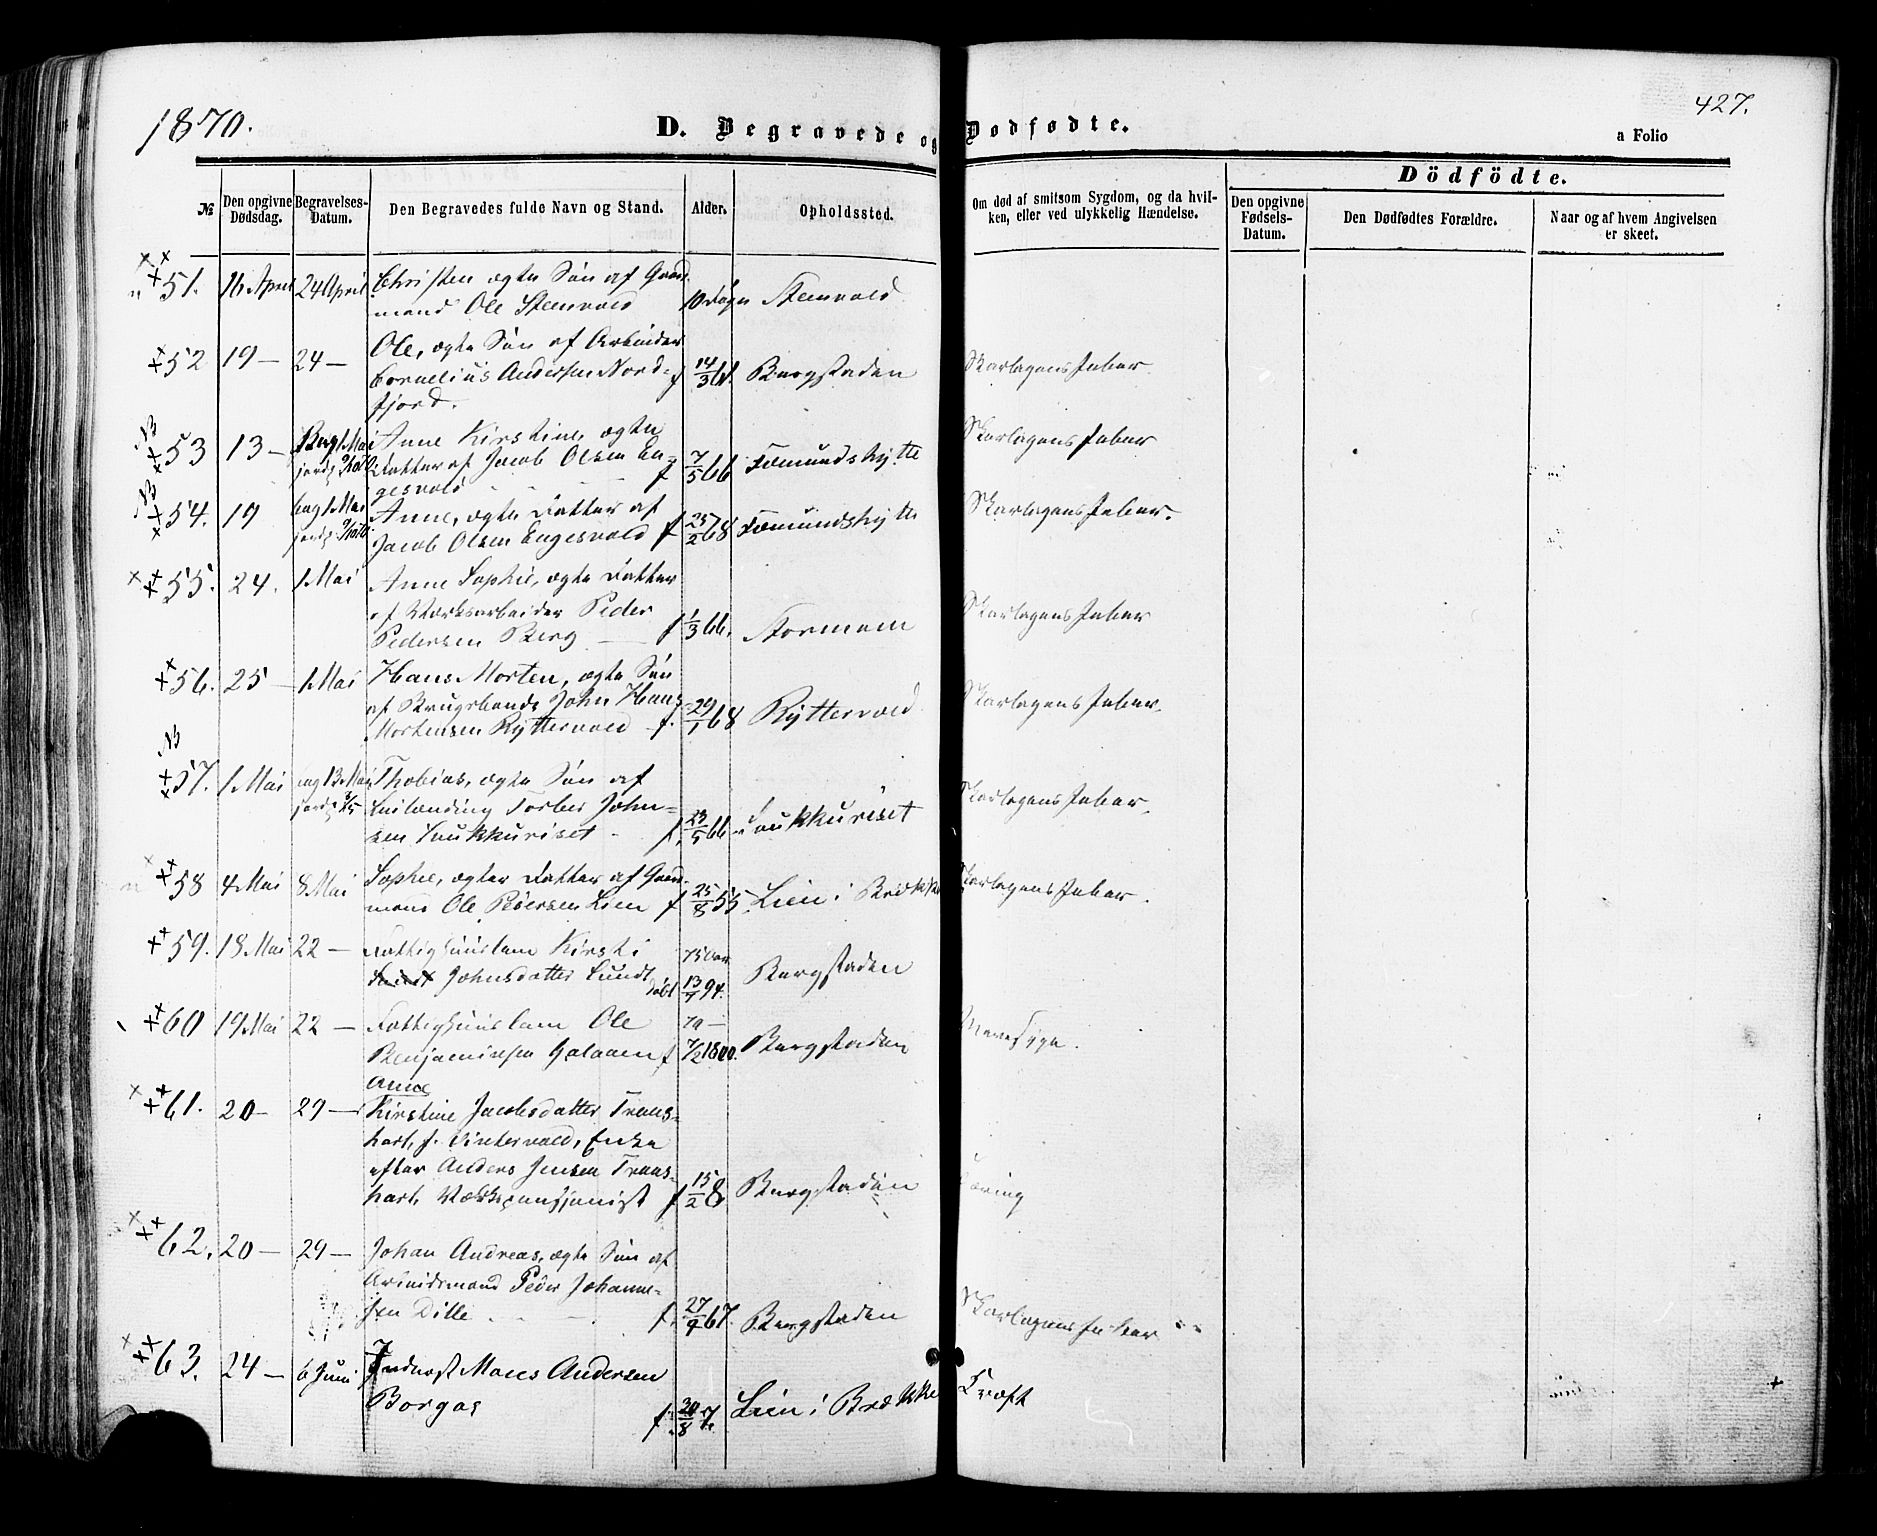 1870.
D. Begravede og Dødfødte.
427.
a Folio
№
Den opgivne Dødsdag.
Begravelses-Datum.
Den Begravedes fulde Navn og Stand.
Alder.
Opholdssted.
Om død af smitsom Sygdom, og da hvilken, eller ved ulykkelig Hændelse.
Dödfödte.
Den opgivne Fødsels-Datum.
Den Dødfødtes Forældre.
Naar og af hvem Angivelsen er skeet.
51. 16 April 24 April Christen ægte Søn af Gaard-
mand Ole Stenvold 10 Døgn Stenvold
52 19 — 24 — Ole, ægte Søn af Arbeider
Cornelius Andersen Nord- f 14/3 61. Bergstaden Skarlagensfeber
fjord.
NB
53 13 — Begr 1 Mai Anne Kirstine, ægte
Datter af Jacob Olsen En- 7/5 66 Fæmundshytte Skarlagensfeber
gesvold f
NB
54. 19 1 Mai Anne, ægte Datter af
Jacob Olsen Engesvold f 25/2 68 Fæmundshytte Skarlagensfeber.
55. 24. 1 Mai Anne Sophie, ægte Datter
af Værksarbeider Peder
Pedersen Berg f 1/3 66. Stormoen Skarlagensfeber
56. 25 — 1 Mai Hans Morten, ægte Søn
af Brugsbonde John Hans
Mortensen Ryttervold f. 29/1 68 Ryttervold Skarlagensfeber.
NB
57. 1 Mai 13 Mai Thobias, ægte Søn af
Inlænding Torber John-
sen Foukkuriset f. 23/5 66 Foukkuriset Skarlagensfeber.
58 4 Mai 8 Mai Sophie, ægte Datter af Gaard-
mand Ole Pedersen Lien f 25/8 55. Lien i Brækken Skarlagensfeber.
59. 18 Mai 22 — Fattighuuslem Kirsti
Johnsdatter Lundt døbt 75 Aar 13/7 94. Bergstaden
60 19 Mai 22 — Fattighuuslem Ole
Benjaminsen Galaaen f 70 — 7/2 1800. Bergstaden
Anne
61. 20 — 29 — Kirstine Jacobsdatter Trons-
hart, f. Vintervold, Enke
efter Anders Jensen Trons-
hart, f 15/2 8 Bergstaden Tæring
62. 20 — 29 — Johan Andreas, ægte Søn af
Arbeidsmand Peder Johanne-
sen Dille f. 27/9 67. Bergstaden Skarlagensfeber
63. 24 — 6 Juni Inderst Mons Andersen
Borgos f. 20/8 Lien i Brækken Kræft